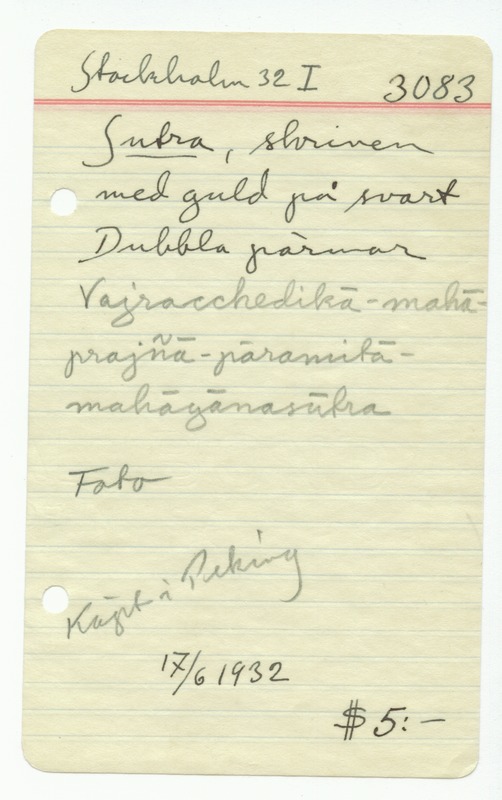 Stockholm 32 I 3083
Sutra, skriven
med guld på svart
Dubbla pärmar
Vajracchedikā-mahā-
prajñā-pāramitā-
mahāyānasūtra
Foto
Köpt i Peking
17/6 1932
$ 5:-